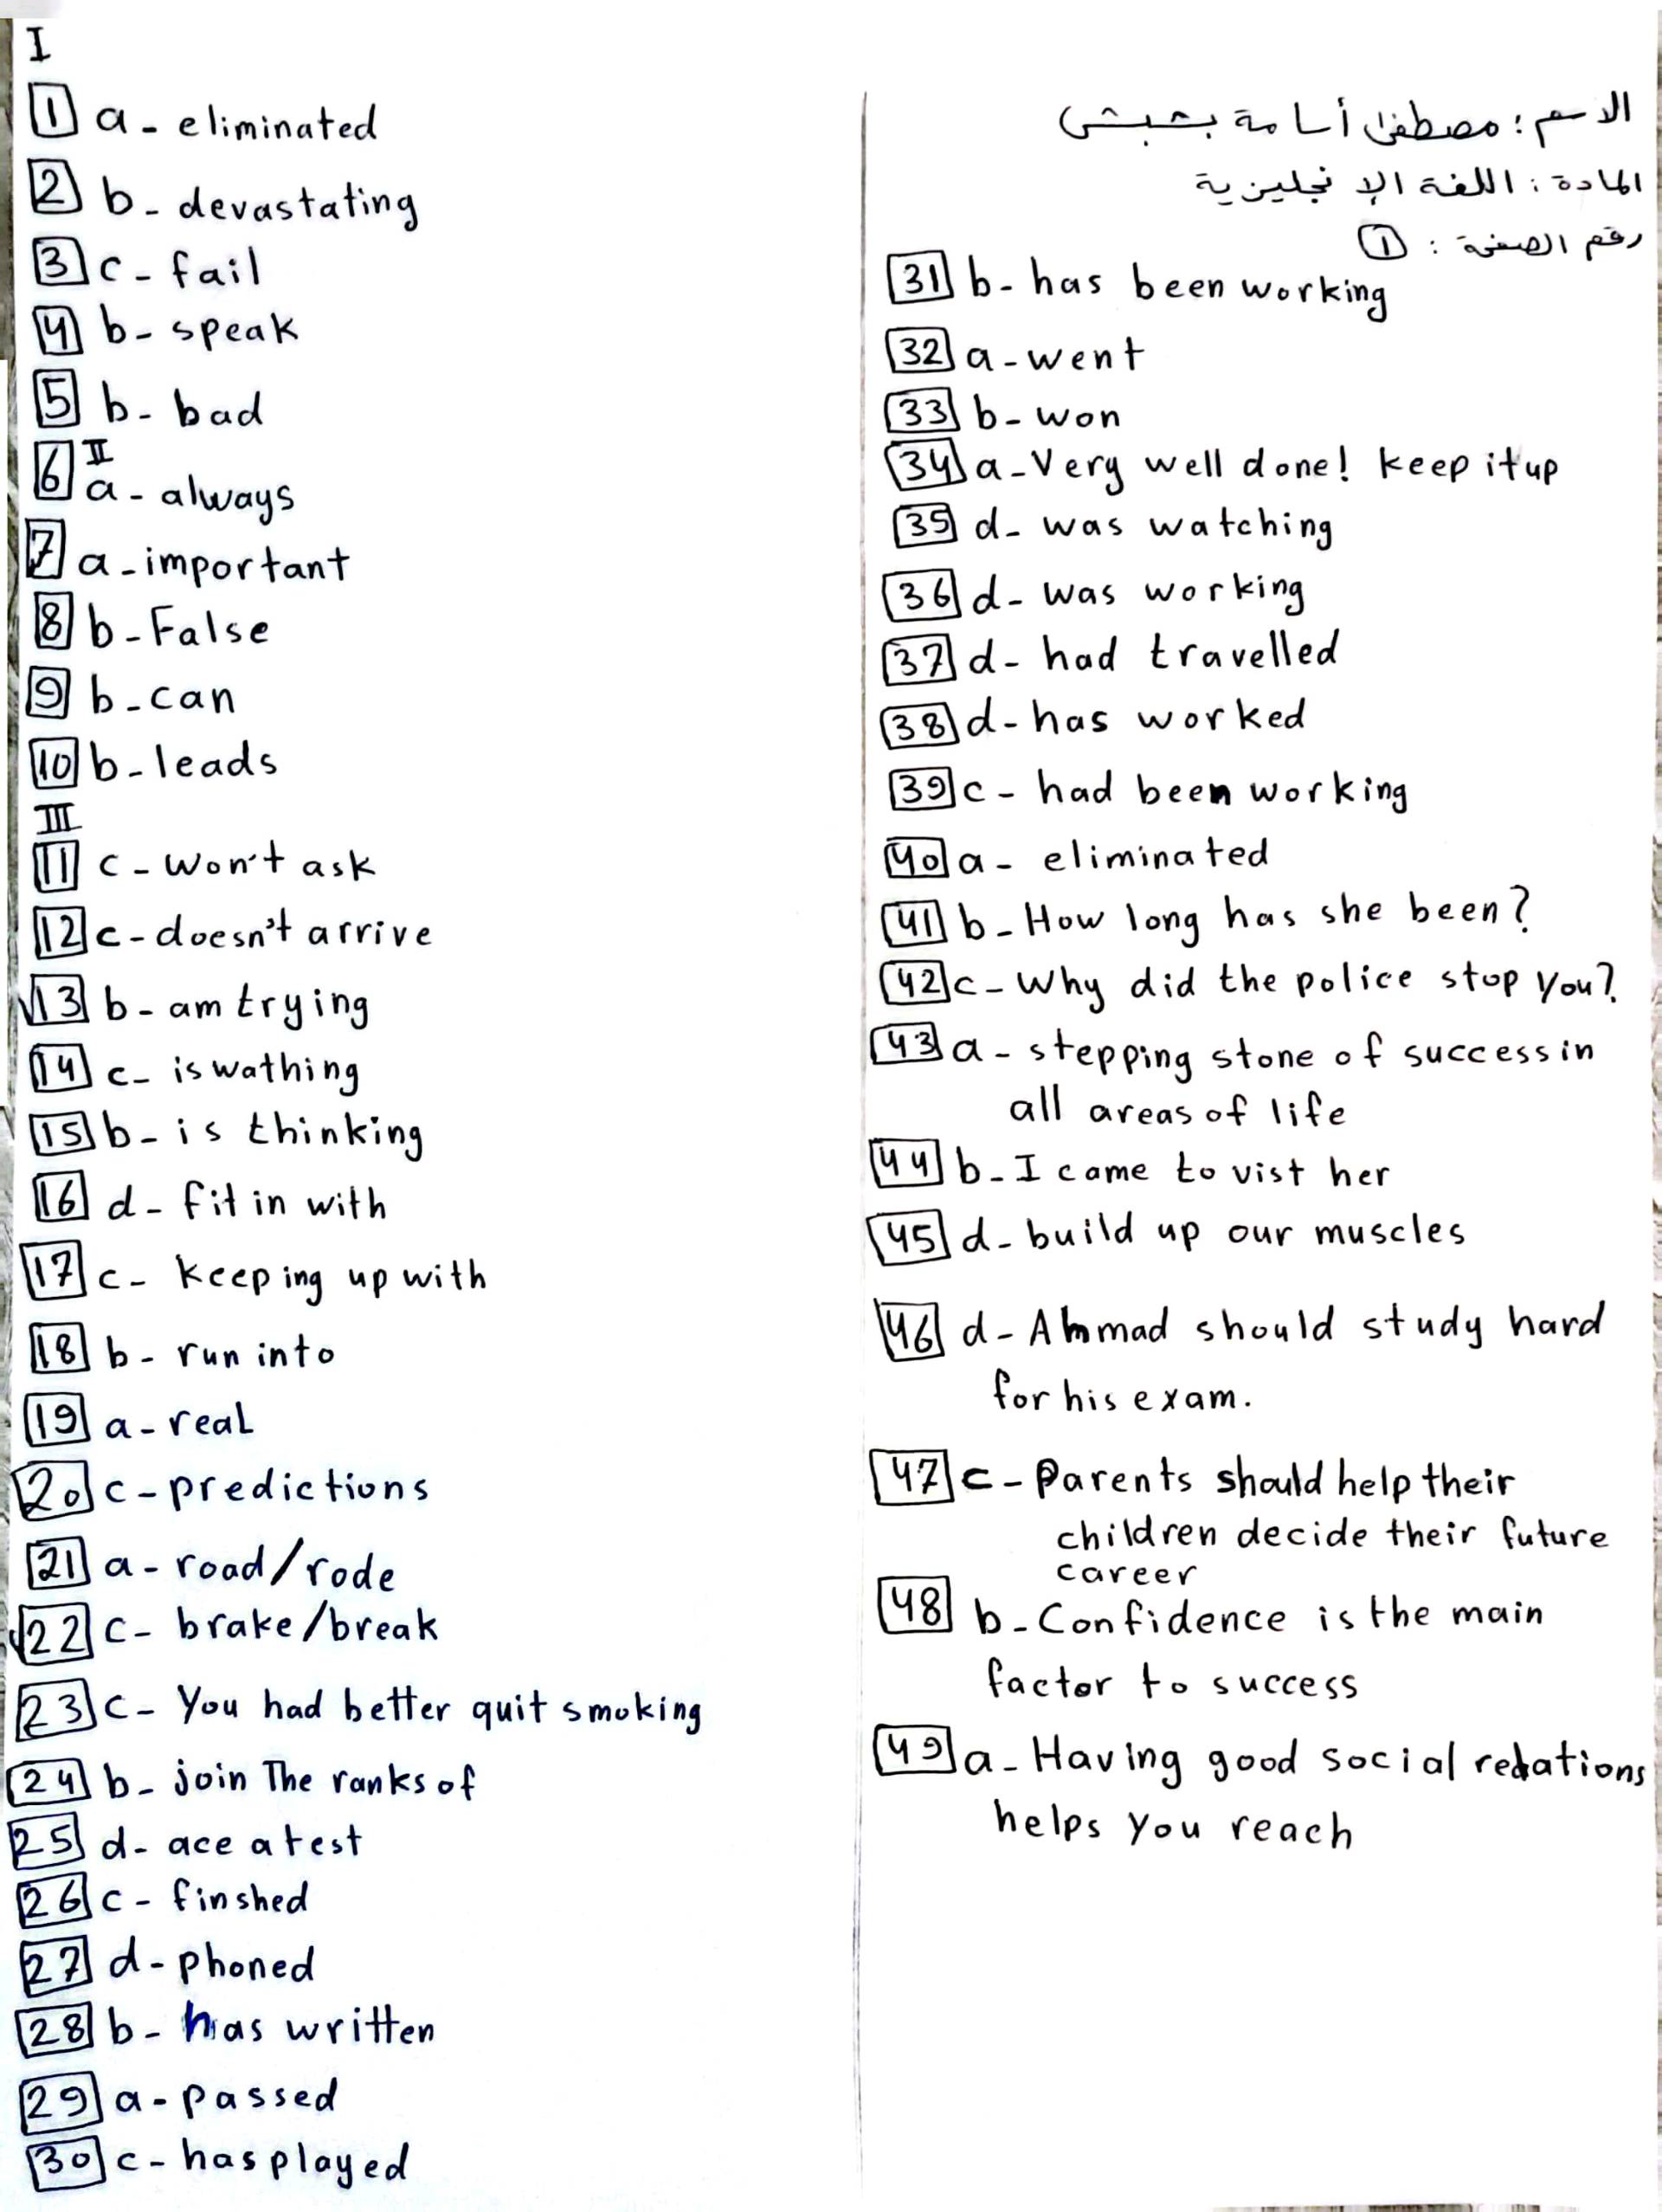 I
1 a - eliminated
2 b - devastating
3 c - fail
4 b - speak
5 b - bad
II
6 a - always
7 a - important
8 b - False
9 b - can
10 b - leads
III
11 c - won't ask
12 c - doesn't arrive
13 b - am trying
14 c - is wathing
15 b - is thinking
16 d - fit in with
17 c - keeping up with
18 b - run into
19 a - real
20 c - predictions
21 a - road/rode
22 c - brake/break
23 c - You had better quit smoking
24 b - join The ranks of
25 d - ace a test
26 c - finshed
27 d - phoned
28 b - has written
29 a - passed
30 c - has played
الاسم : مصطفى أسامة بشبشى
المادة : اللغة الإنجليزية
رقم الصفحة : 1
31 b - has been working
32 a - went
33 b - won
34 a - Very well done! keep it up
35 d - was watching
36 d - was working
37 d - had travelled
38 d - has worked
39 c - had been working
40 a - eliminated
41 b - How long has she been?
42 c - Why did the police stop you?
43 a - stepping stone of success in
all areas of life
44 b - I came to vist her
45 d - build up our muscles
46 d - Ahmad should study hard
for his exam.
47 c - Parents should help their
children decide their future
career
48 b - Confidence is the main
factor to success
49 a - Having good social relations
helps you reach